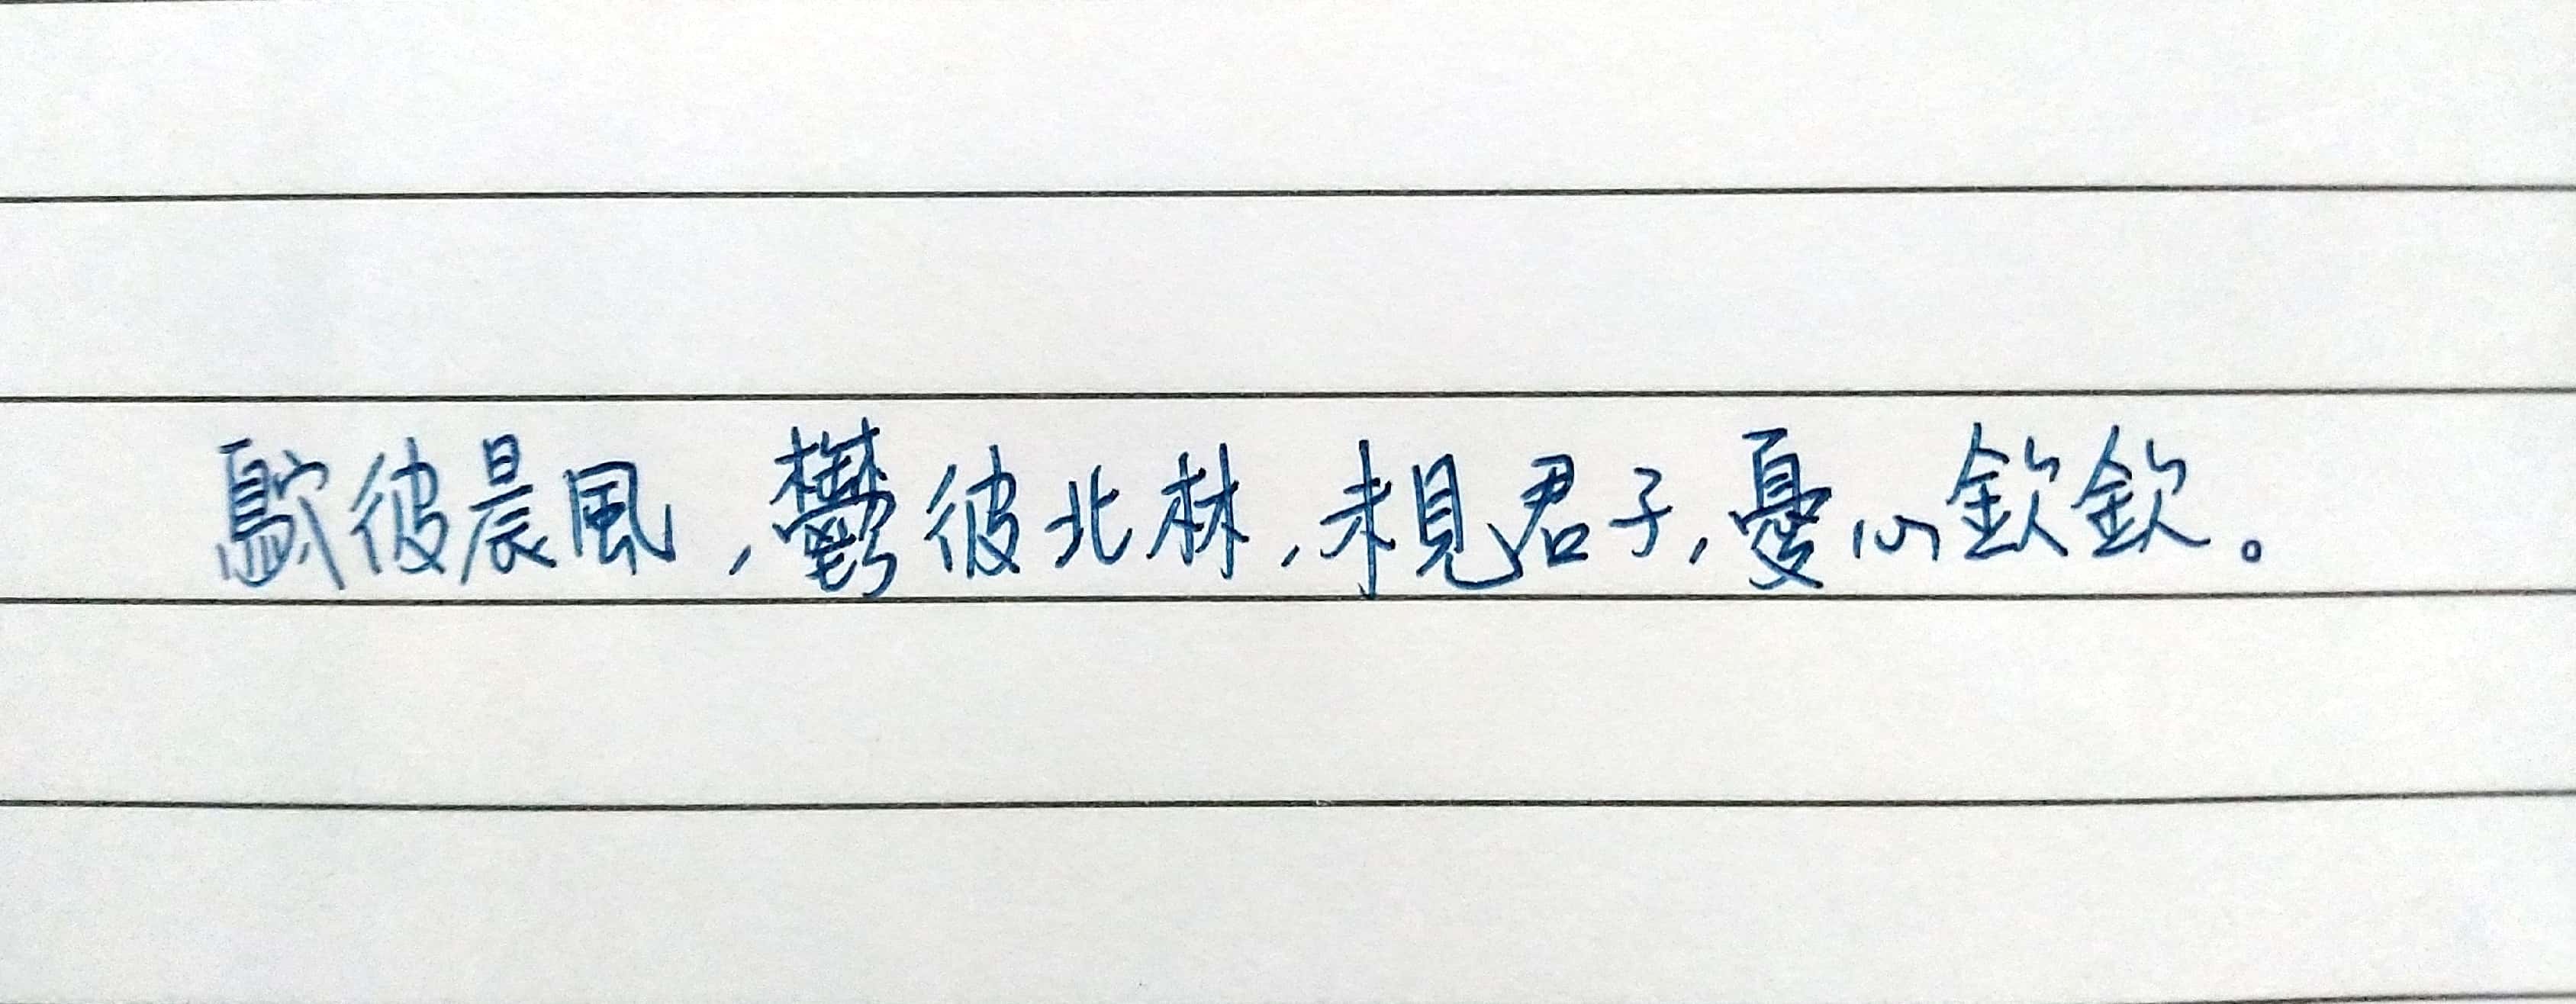 鴥彼晨風,鬱彼北林,未見君子,憂心欽欽。